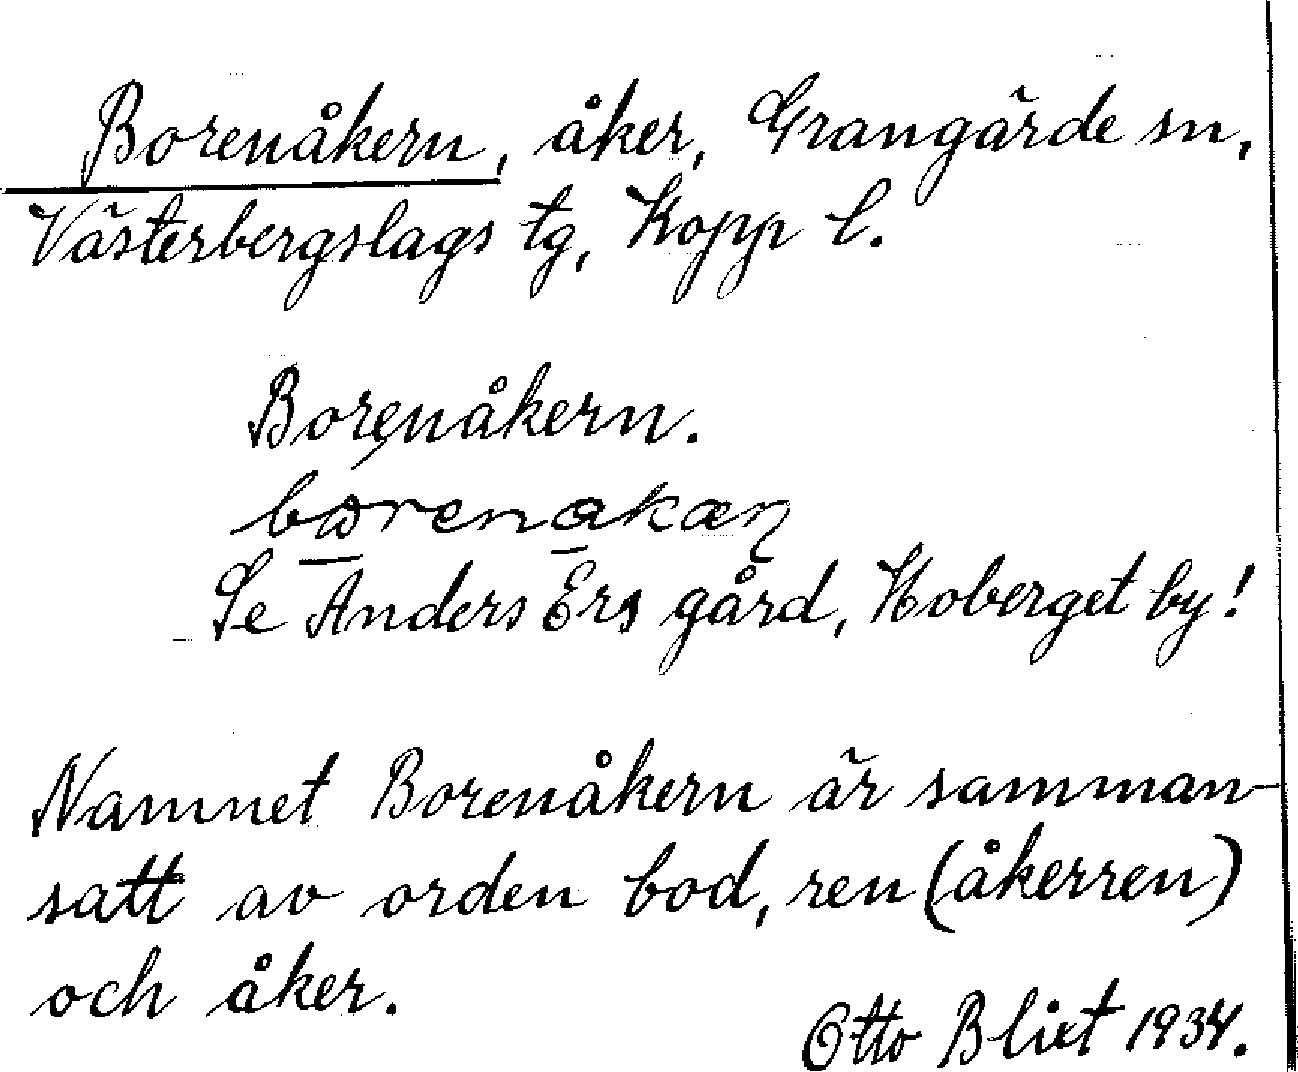 Borenåkern, åker, Grangärde sn,
Västerbergslags tg, Kopp l.
Borenåkern.
Se Anders Ers gård, Hoberget by!
Namnet Borenåkern är samman-
satt av orden bod, ren (åkerren)
och åker.
Otto Blixt 1934.